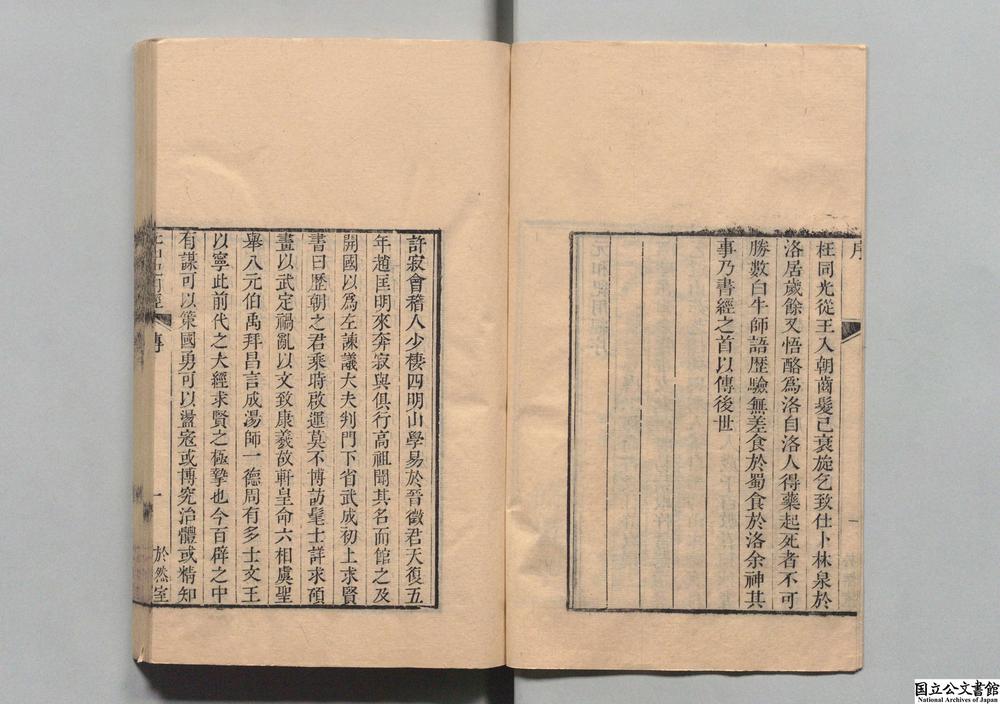 序
枉同光從王入朝齒髮已衰旋乞致仕卜林泉於
洛居歲餘又悟酪爲洛自洛人得藥起死者不可
勝數白牛師語歷驗無差食於蜀食於洛余神其
事乃書經之首以傳後世
一
許寂會稽人少棲四明山學易於晉徵君天復五
年趙匡明來奔寂與俱行高祖聞其名而館之及
開國以爲左諫議大夫判門下省武成初上求賢
書曰歷朝之君乘時啟運莫不博訪髦士詳求碩
畫以武定禍亂以文致康羲故軒皇命六相虞聖
舉八元伯禹拜昌言成湯師一德周有多士文王
以寧此前代之大經求賢之極摯也今百辟之中
有謀可以策國勇可以盪寇或博究治體或精知
傳
一
於然室
国立公文書館
National Archives of Japan